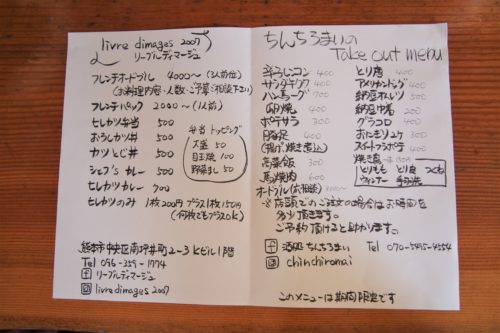 livre dimages 2007
リーブルディマージュ
フレンチオードブル 4000〜(3人前位)
(お料理内容・人数・ご予算ご相談下さい)
フレンチパック 2000〜(1人前)
ヒレカツ弁当 500
おろしカツ丼 500
カツとじ丼 500
シェフ's カレー 500
ヒレカツカレー 700
ヒレカツのみ 1枚200円 プラス1枚150円
(何枚でもプラスOK)
弁当トッピング
大盛 50
目玉焼 100
野菜まし 50
熊本市中央区南坪井町2-3 Kビル1階
Tel 096-359-1774
リーブルディマージュ
livre dimages 2007
ちんちろまいの
Take out menu
辛子レンコン 400
サンダキクワ 400
ハンバーグ 700
卵焼 400
ポテサラ 300
豚足 400
(揚げ 焼き 煮込)
高菜飯 300
馬焼肉 600
オードブル(お相談) 3000〜
とり唐 400
アメリカンドッグ 400
納豆オムレツ 500
納豆巾着 200
グラコロ 400
おにぎり 2ケ 300
スイートポテト 400
焼き鳥 一本150円
とりもも とり皮 つくね
ウインナー
※店頭でのご注文の場合はお時間を
多少頂きます。
ご予約頂けると助かります。
酒処 ちんちろまい Tel 070-5495-4554
chinchiromai
このメニューは期間限定です